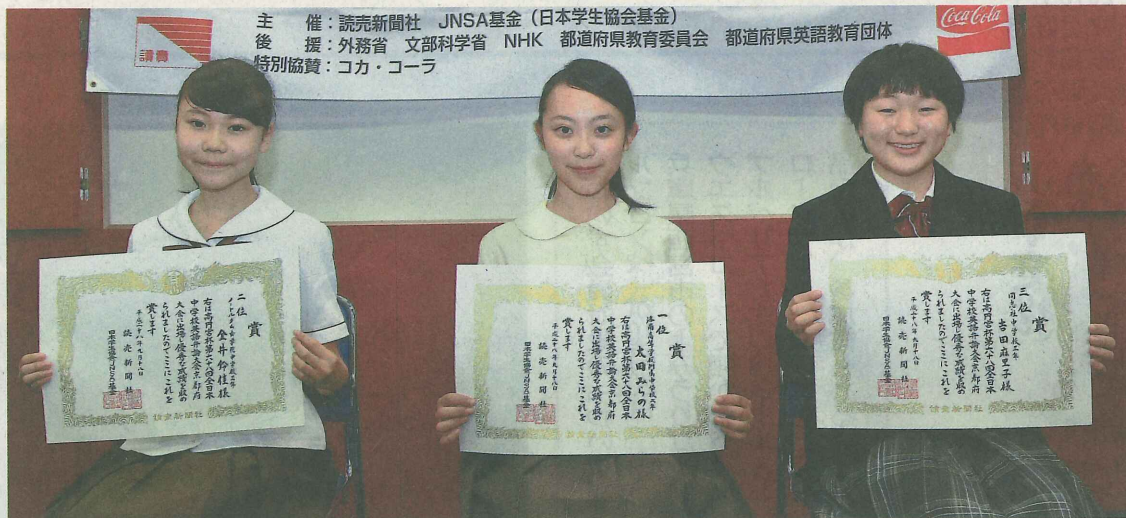 主　　催：読売新聞社　JNSA基金（日本学生協会基金）
後　　援：外務省　文部科学省　NHK　都道府県教育委員会　都道府県英語教育団体
特別協賛：コカ・コーラ
讀賣
Coca-Cola
賞
二位
金井伶佳様
右は高円宮杯第六十八回全日本
中学校英語弁論大会京都府
大会に出場し優秀な成績を収め
られましたのでここにこれを
賞します
平成二十八年九月十八日
読売新聞社
日本学生協会JNSA基金
讀賣新聞社
賞
一位
洛南高等学校附属中学校
太田みらの様
右は高円宮杯第六十八回全日本
中学校英語弁論大会京都府
大会に出場し優秀な成績を収め
られましたのでここにこれを
賞します
平成二十八年九月十八日
読売新聞社
日本学生協会JNSA基金
讀賣新聞社
賞
三位
同志社中学校
吉田麻里子様
右は高円宮杯第六十八回全日本
中学校英語弁論大会京都府
大会に出場し優秀な成績を収め
られましたのでここにこれを
賞します
平成二十八年九月十八日
読売新聞社
日本学生協会JNSA基金
讀賣新聞社